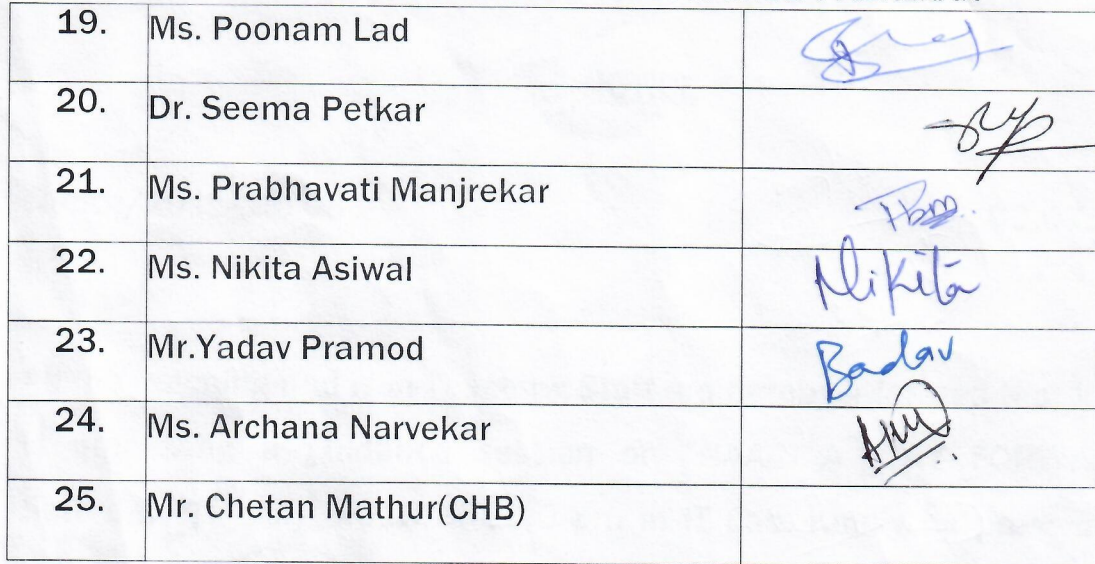 19. Ms. Poonam Lad
20. Dr. Seema Petkar
21. Ms. Prabhavati Manjrekar
22. Ms. Nikita Asiwal Nikita
23. Mr.Yadav Pramod
24. Ms. Archana Narvekar
25. Mr. Chetan Mathur(CHB)